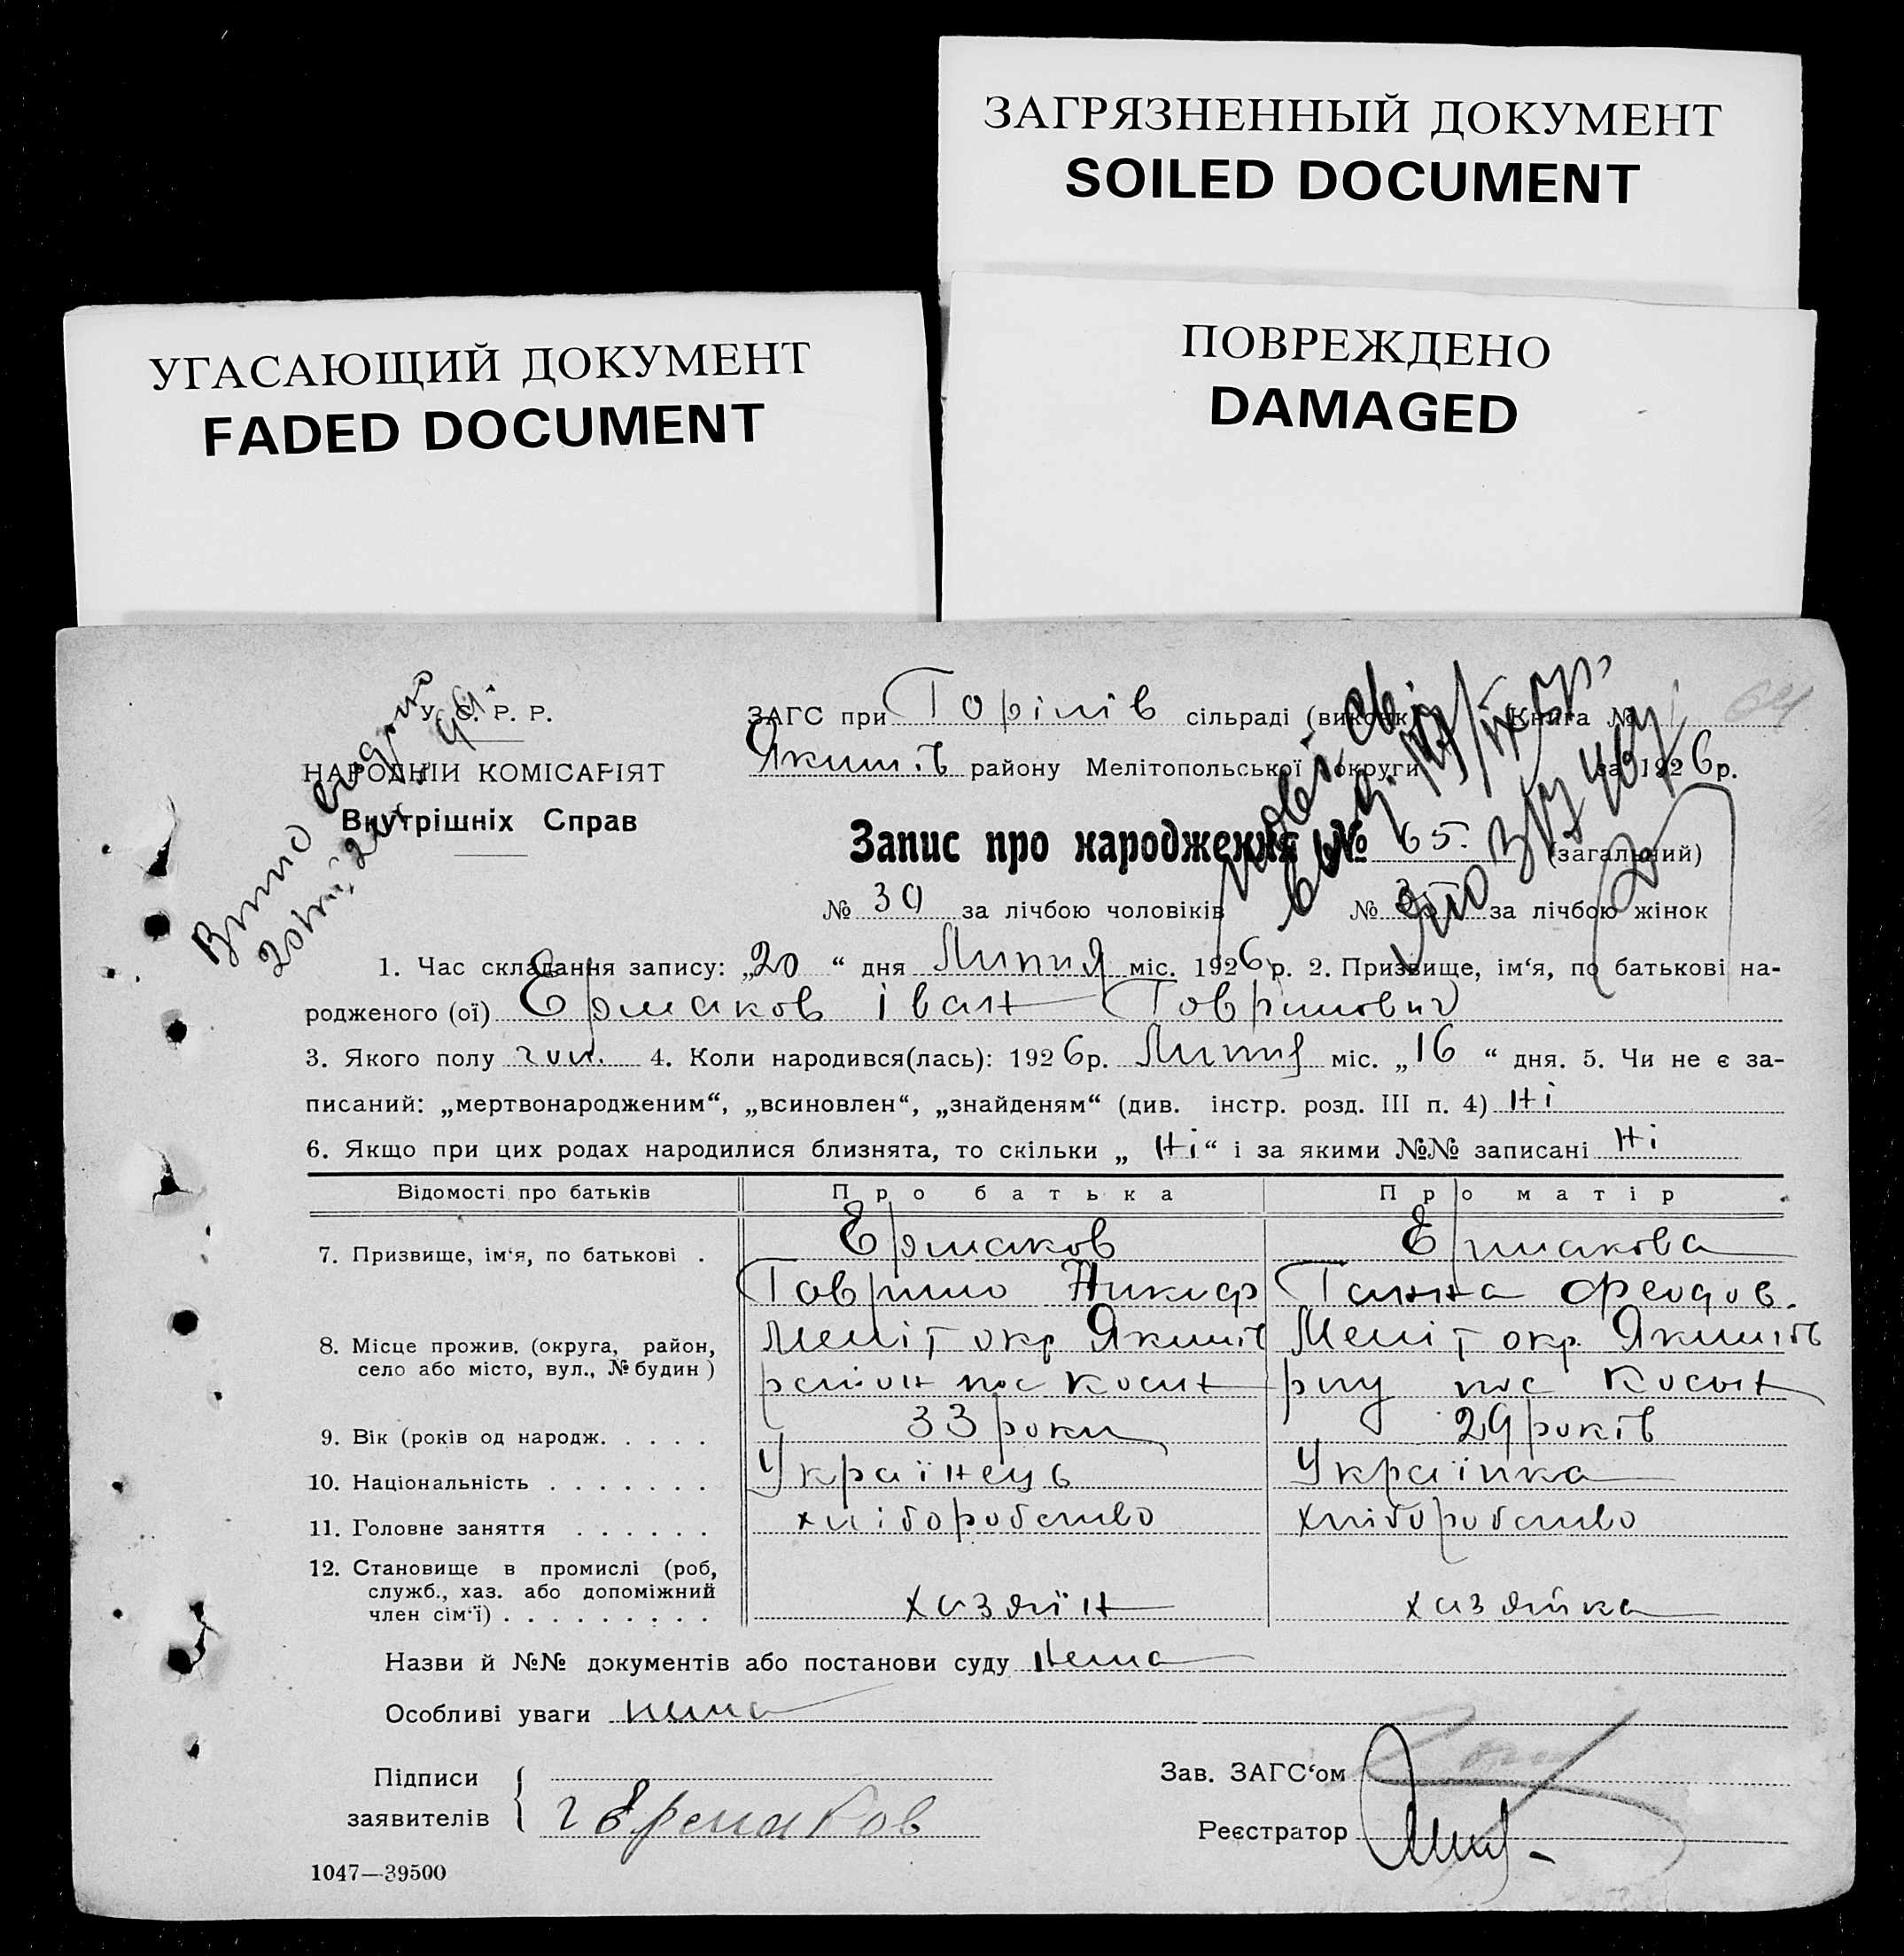 ЗАГРЯЗНЕННЫЙ ДОКУМЕНТ
SOILED DOCUMENT
УГАСАЮЩИЙ ДОКУМЕНТ
FADED DOCUMENT
ПОВРЕЖДЕНО
DAMAGED
У. С. Р. Р.
НАРОДНІЙ КОМІСАРІЯТ
Внутрішніх Справ
ЗАГС при Горілів сільраді (виконк.) Книга № 64
Якимів району Мелітопольської округи за 1926 р.
Запис про народження № 65 (загальний)
№ 39 за лічбою чоловіків № за лічбою жінок
1. Час складання запису: „20“ дня Липня міс. 1926 р. 2. Призвище, ім‘я, по батькові на-
родженого (ої) Ермаков Іван Гаврилович
3. Якого полу чол. 4. Коли народився(лась): 1926 р. Липня міс. „16“ дня. 5. Чи не є за-
писаний: „мертвонародженим“, „всиновлен“, „знайденям“ (див. інстр. розд. III п. 4) Ні
6. Якщо при цих родах народилися близнята, то скільки „Ні“ і за якими №№ записані Ні
Відомості про батьків Про батька Про матір
7. Призвище, ім‘я, по батькові . Ермаков Ермакова
Гаврило Никиф Ганна Феодов.
8. Місце прожив. (округа, район, Меліт окр Якимів Меліт окр. Якимів
село або місто, вул., № будин) район пос Косих рну пос Косих
9. Вік (років од народж. . . . . 33 роки 29 років
10. Національність . . . . . . . Українець Українка
11. Головне заняття . . . . . . хліборобство хліборобство
12. Становище в промислі (роб,
служб., хаз. або допоміжний
член сім‘ї) . . . . . . . . . хазяїн хазяйка
Назви й №№ документів або постанови суду нема
Особливі уваги нема
Підписи
заявителів Г Ермаков
Зав. ЗАГС‘ом
Реєстратор
1047—39500